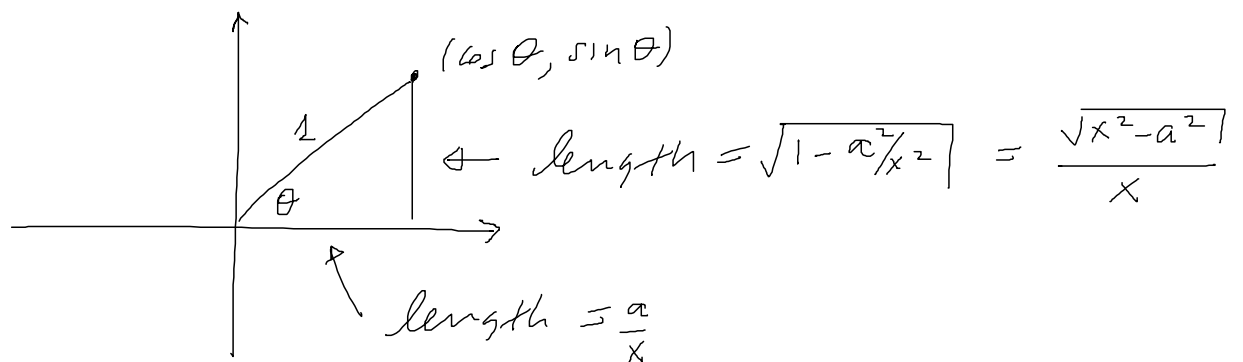 (cos θ, sin θ)
1
θ
length = √(1 - a²/x²) = √(x² - a²) / x
length = a/x